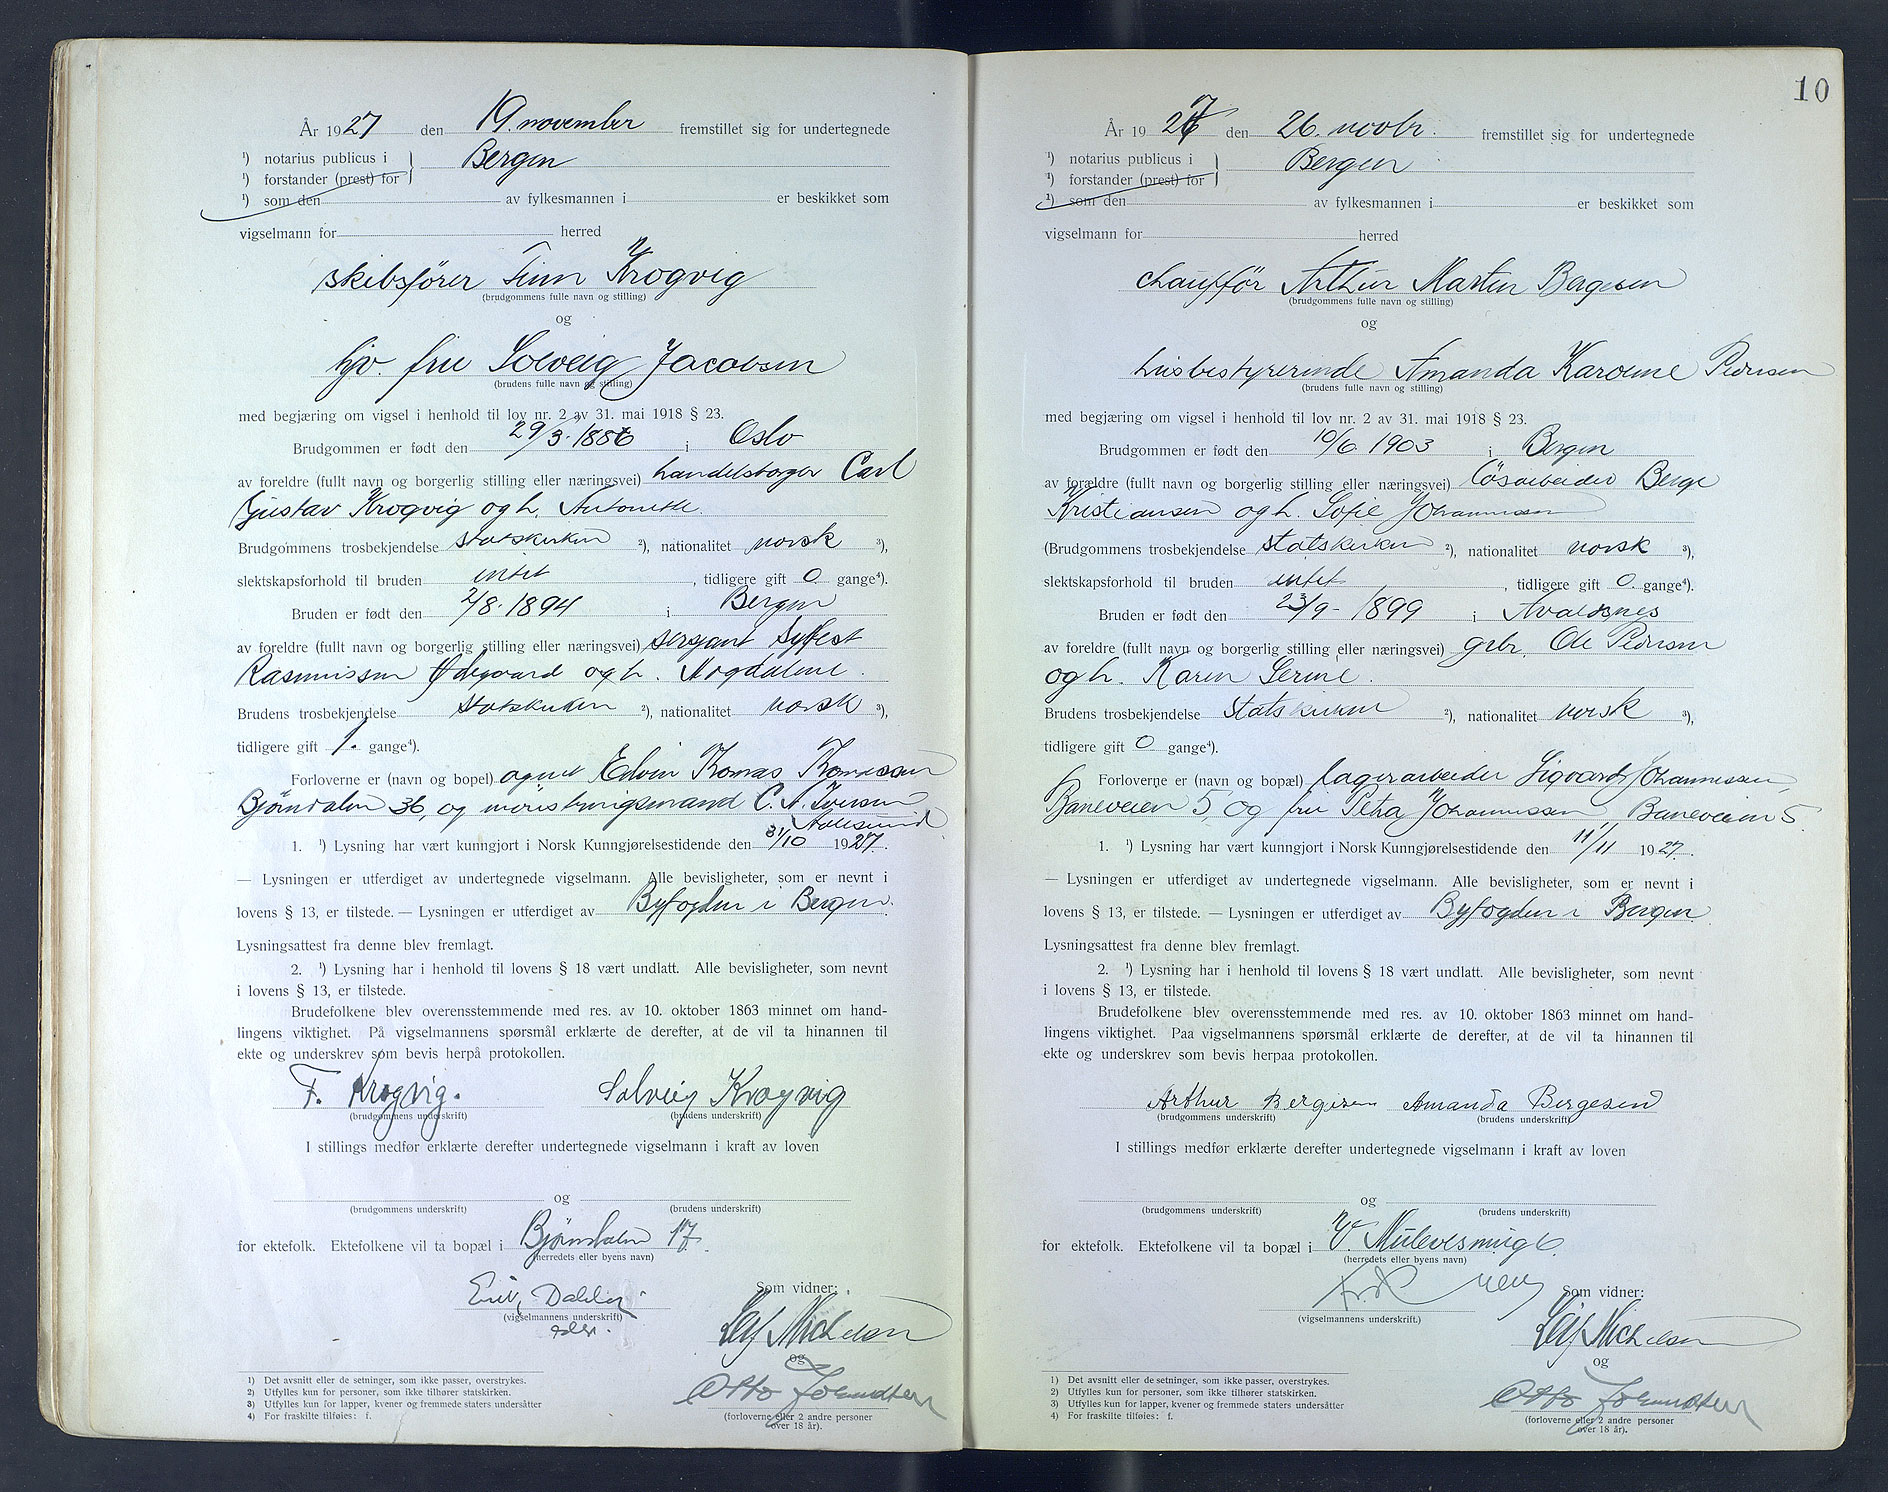 År 1927 den 19. november fremstillet sig for undertegnede
¹) notarius publicus i Bergen
¹) forstander (prest) for
¹) som den av fylkesmannen i er beskikket som
vigselmann for herred
skibsfører Finn Krogvig
(brudgommens fulle navn og stilling)
og
hjv. fru Solveig Jacobsen
(brudens fulle navn og stilling)
med begjæring om vigsel i henhold til lov nr. 2 av 31. mai 1918 § 23.
Brudgommen er født den 29/3. 1886 i Oslo
av foreldre (fullt navn og borgerlig stilling eller næringsvei) handelsborger Carl
Gustav Krogvig og h. Antonette.
Brudgommens trosbekjendelse statskirken ²), nationalitet norsk ³),
slektskapsforhold til bruden intet , tidligere gift 0 gange⁴).
Bruden er født den 2/8. 1894 i Bergen
av foreldre (fullt navn og borgerlig stilling eller næringsvei) sersjant Syffest
Rasmussen Ødegaard og h. Magdalene.
Brudens trosbekjendelse statskirken ²), nationalitet norsk ³),
tidligere gift 1. gange⁴).
Forloverne er (navn og bopel) agent Edvin Tomas Tomassen
Bjørndalen 36, og C. A. Iversen
Aalesund
1. ¹) Lysning har vært kunngjort i Norsk Kunngjørelsestidende den 31/10 1927.
— Lysningen er utferdiget av undertegnede vigselmann. Alle bevisligheter, som er nevnt i
lovens § 13, er tilstede. — Lysningen er utferdiget av Byfogden i Bergen.
Lysningsattest fra denne blev fremlagt.
2. ¹) Lysning har i henhold til lovens § 18 vært undlatt. Alle bevisligheter, som nevnt
i lovens § 13, er tilstede.
Brudefolkene blev overensstemmende med res. av 10. oktober 1863 minnet om hand-
lingens viktighet. På vigselmannens spørsmål erklærte de derefter, at de vil ta hinannen til
ekte og underskrev som bevis herpå protokollen.
F. Krogvig. Solveig Krogvig
(brudgommens underskrift) (brudens underskrift)
I stillings medfør erklærte derefter undertegnede vigselmann i kraft av loven
og
(brudgommens underskrift) (brudens underskrift)
for ektefolk. Ektefolkene vil ta bopæl i Bjørndalen 17.
(herredets eller byens navn)
Som vidner:
(vigselmannens underskrift)
Leif Michelsen
og
Otto
(forloverne eller 2 andre personer
over 18 år).
1) Det avsnitt eller de setninger, som ikke passer, overstrykes.
2) Utfylles kun for personer, som ikke tilhører statskirken.
3) Utfylles kun for lapper, kvener og fremmede staters undersåtter
4) For fraskilte tilføies: f.
10
År 1927 den 26. novbr. fremstillet sig for undertegnede
¹) notarius publicus i Bergen
¹) forstander (prest) for
¹) som den av fylkesmannen i er beskikket som
vigselmann for herred
chauffør Arthur Martin Bergesen
(brudgommens fulle navn og stilling)
og
husbestyrerinde Amanda Karoline Pedersen
(brudens fulle navn og stilling)
med begjæring om vigsel i henhold til lov nr. 2 av 31. mai 1918 § 23.
Brudgommen er født den 10/6 1903 i Bergen
av forældre (fullt navn og borgerlig stilling eller næringsvei) løsarbeider Berge
Kristiansen og h. Sofie Johannessen
(Brudgommens trosbekjendelse statskirken ²), nationalitet norsk ³),
slektskapsforhold til bruden intet , tidligere gift 0 gange⁴).
Bruden er født den 23/9 - 1899 i Avaldsnes
av foreldre (fullt navn og borgerlig stilling eller næringsvei) gbr. Ole Pedersen
og h. Karen Serine.
Brudens trosbekjendelse statskirken ²), nationalitet norsk ³),
tidligere gift 0 gange⁴).
Forloverne er (navn og bopæl) lagerarbeider Sigvard Johannessen,
Baneveien 5, og fru Petra Johannessen, Baneveien 5.
1. ¹) Lysning har vært kunngjort i Norsk Kunngjørelsestidende den 11/11 1927.
— Lysningen er utferdiget av undertegnede vigselmann. Alle bevisligheter, som er nevnt i
lovens § 13, er tilstede. — Lysningen er utferdiget av Byfogden i Bergen.
Lysningsattest fra denne blev fremlagt.
2. ¹) Lysning har i henhold til lovens § 18 vært undlatt. Alle bevisligheter, som nevnt
i lovens § 13, er tilstede.
Brudefolkene blev overensstemmende med res. av 10. oktober 1863 minnet om hand-
lingens viktighet. Paa vigselmannens spørsmål erklærte de derefter, at de vil ta hinannen til
ekte og underskrev som bevis herpaa protokollen.
Arthur Bergesen Amanda Bergesen
(brudgommens underskrift) (brudens underskrift)
I stillings medfør erklærte derefter undertegnede vigselmann i kraft av loven
og
(brudgommens underskrift) (brudens underskrift)
for ektefolk. Ektefolkene vil ta bopæl i V. Mulevesmug 6.
(herredets eller byens navn)
Som vidner:
(vigselmannens underskrift.)
Leif Michelsen
og
Otto
(forloverne eller 2 andre personer
over 18 år).
1) Det avsnitt eller de setninger, som ikke passer, overstrykes.
2) Utfylles kun for personer, som ikke tilhører statskirken.
3) Utfylles kun for lapper, kvener og fremmede staters undersåtter
4) For fraskilte tilføies: f.